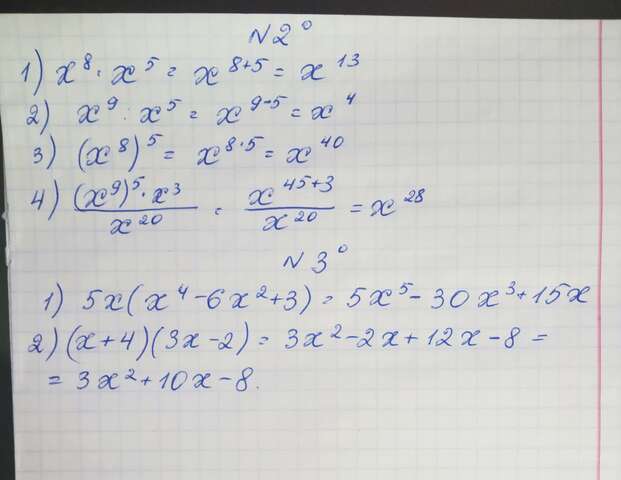 №2°
1) x⁸ · x⁵ = x⁸⁺⁵ = x¹³
2) x⁹ : x⁵ = x⁹⁻⁵ = x⁴
3) (x⁸)⁵ = x⁸·⁵ = x⁴⁰
4) (x⁹)⁵ · x³ / x²⁰ = x⁴⁵⁺³ / x²⁰ = x²⁸
№3°
1) 5x(x⁴ - 6x² + 3) = 5x⁵ - 30x³ + 15x
2) (x + 4)(3x - 2) = 3x² - 2x + 12x - 8 =
= 3x² + 10x - 8.